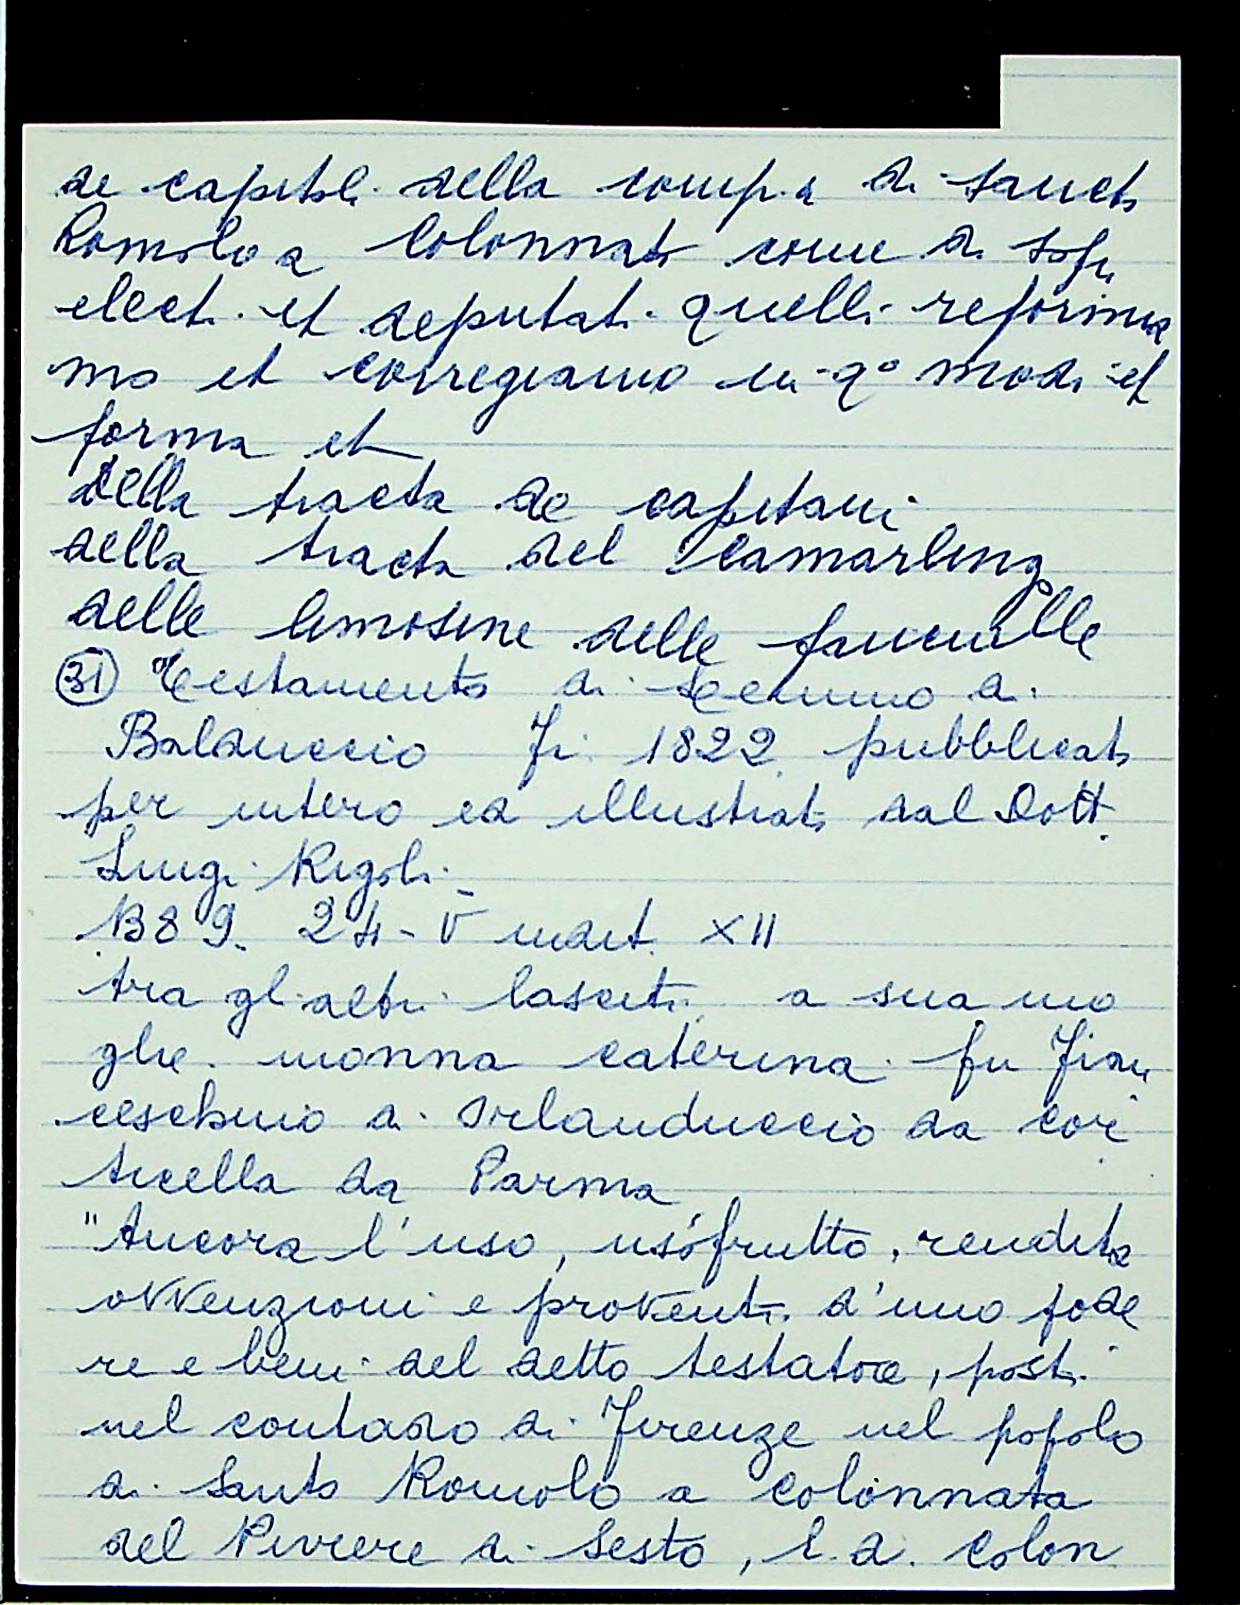 de capitoli della comp.a di sancto
Romolo a Colonnato come di sop.
electi et deputati quelli reforma
mo et corregiamo in q° modi et
forma et
della tracta de capitani
della tracta del Camarlingo
delle limosine delle fanciulle
(31) Testamento di Lemmo di
Balduccio Fi. 1822 pubblicato
per intero ed illustrato dal Dott.
Luigi Rigoli.
1389. 24-V indit. XII
tra gli altri lasciti a sua mo
glie monna caterina fu Fran
ceschino di Orlanduccio da cor
ticella da Parma
"Ancora l'uso, usofrutto, rendita
ovvenzioni e proventi d'uno pode
re e beni del detto testatore, posti
nel contado di Firenze nel popolo
di Santo Romolo a colonnata
del Piviere di Sesto, l.d. colon